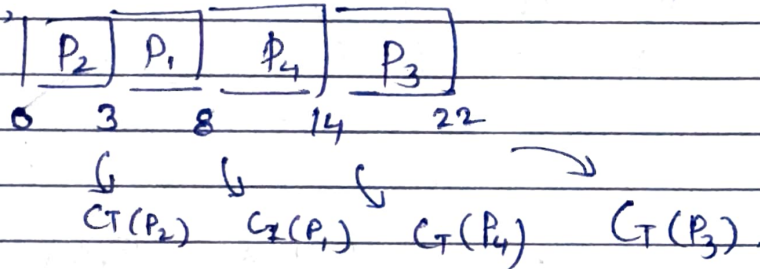 P2 P1 P4 P3
0 3 8 14 22
CT(P2) CT(P1) CT(P4) CT(P3)